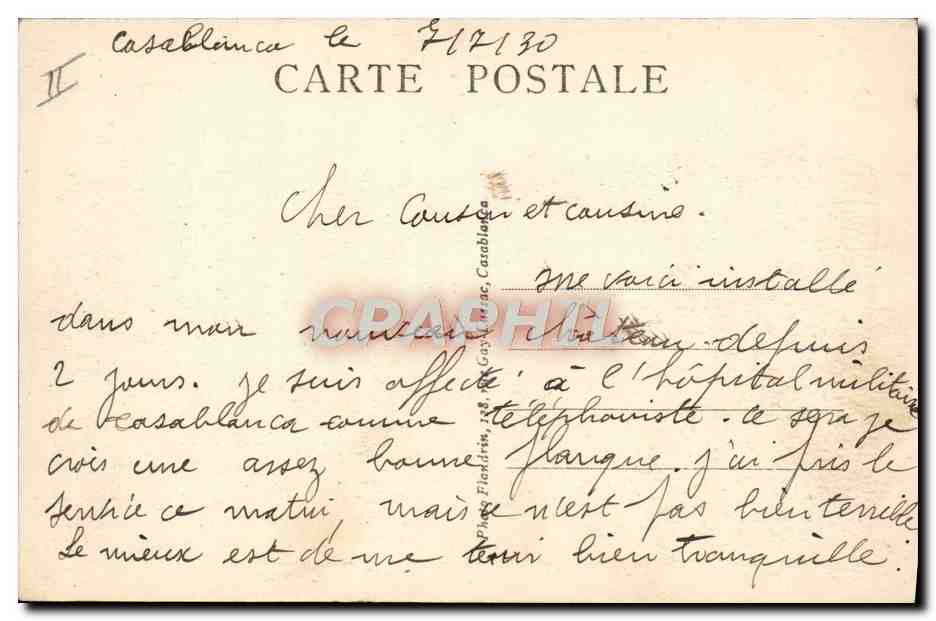 Casablanca le 7/7/30
II
CARTE POSTALE
Cher Cousin et cousine.
me voici installé
dans mon nouveau château depuis
2 jours. je suis affecté à l'hôpital militaire
de Casablanca comme téléphoniste. ce sera je
crois une assez bonne planque. j'ai pris le
service ce matin, mais ce n'est pas bien terrible
Le mieux est de me tenir bien tranquille.
Photo Flandrin, 128, rue Gay-Lussac, Casablanca
CPAPHIL